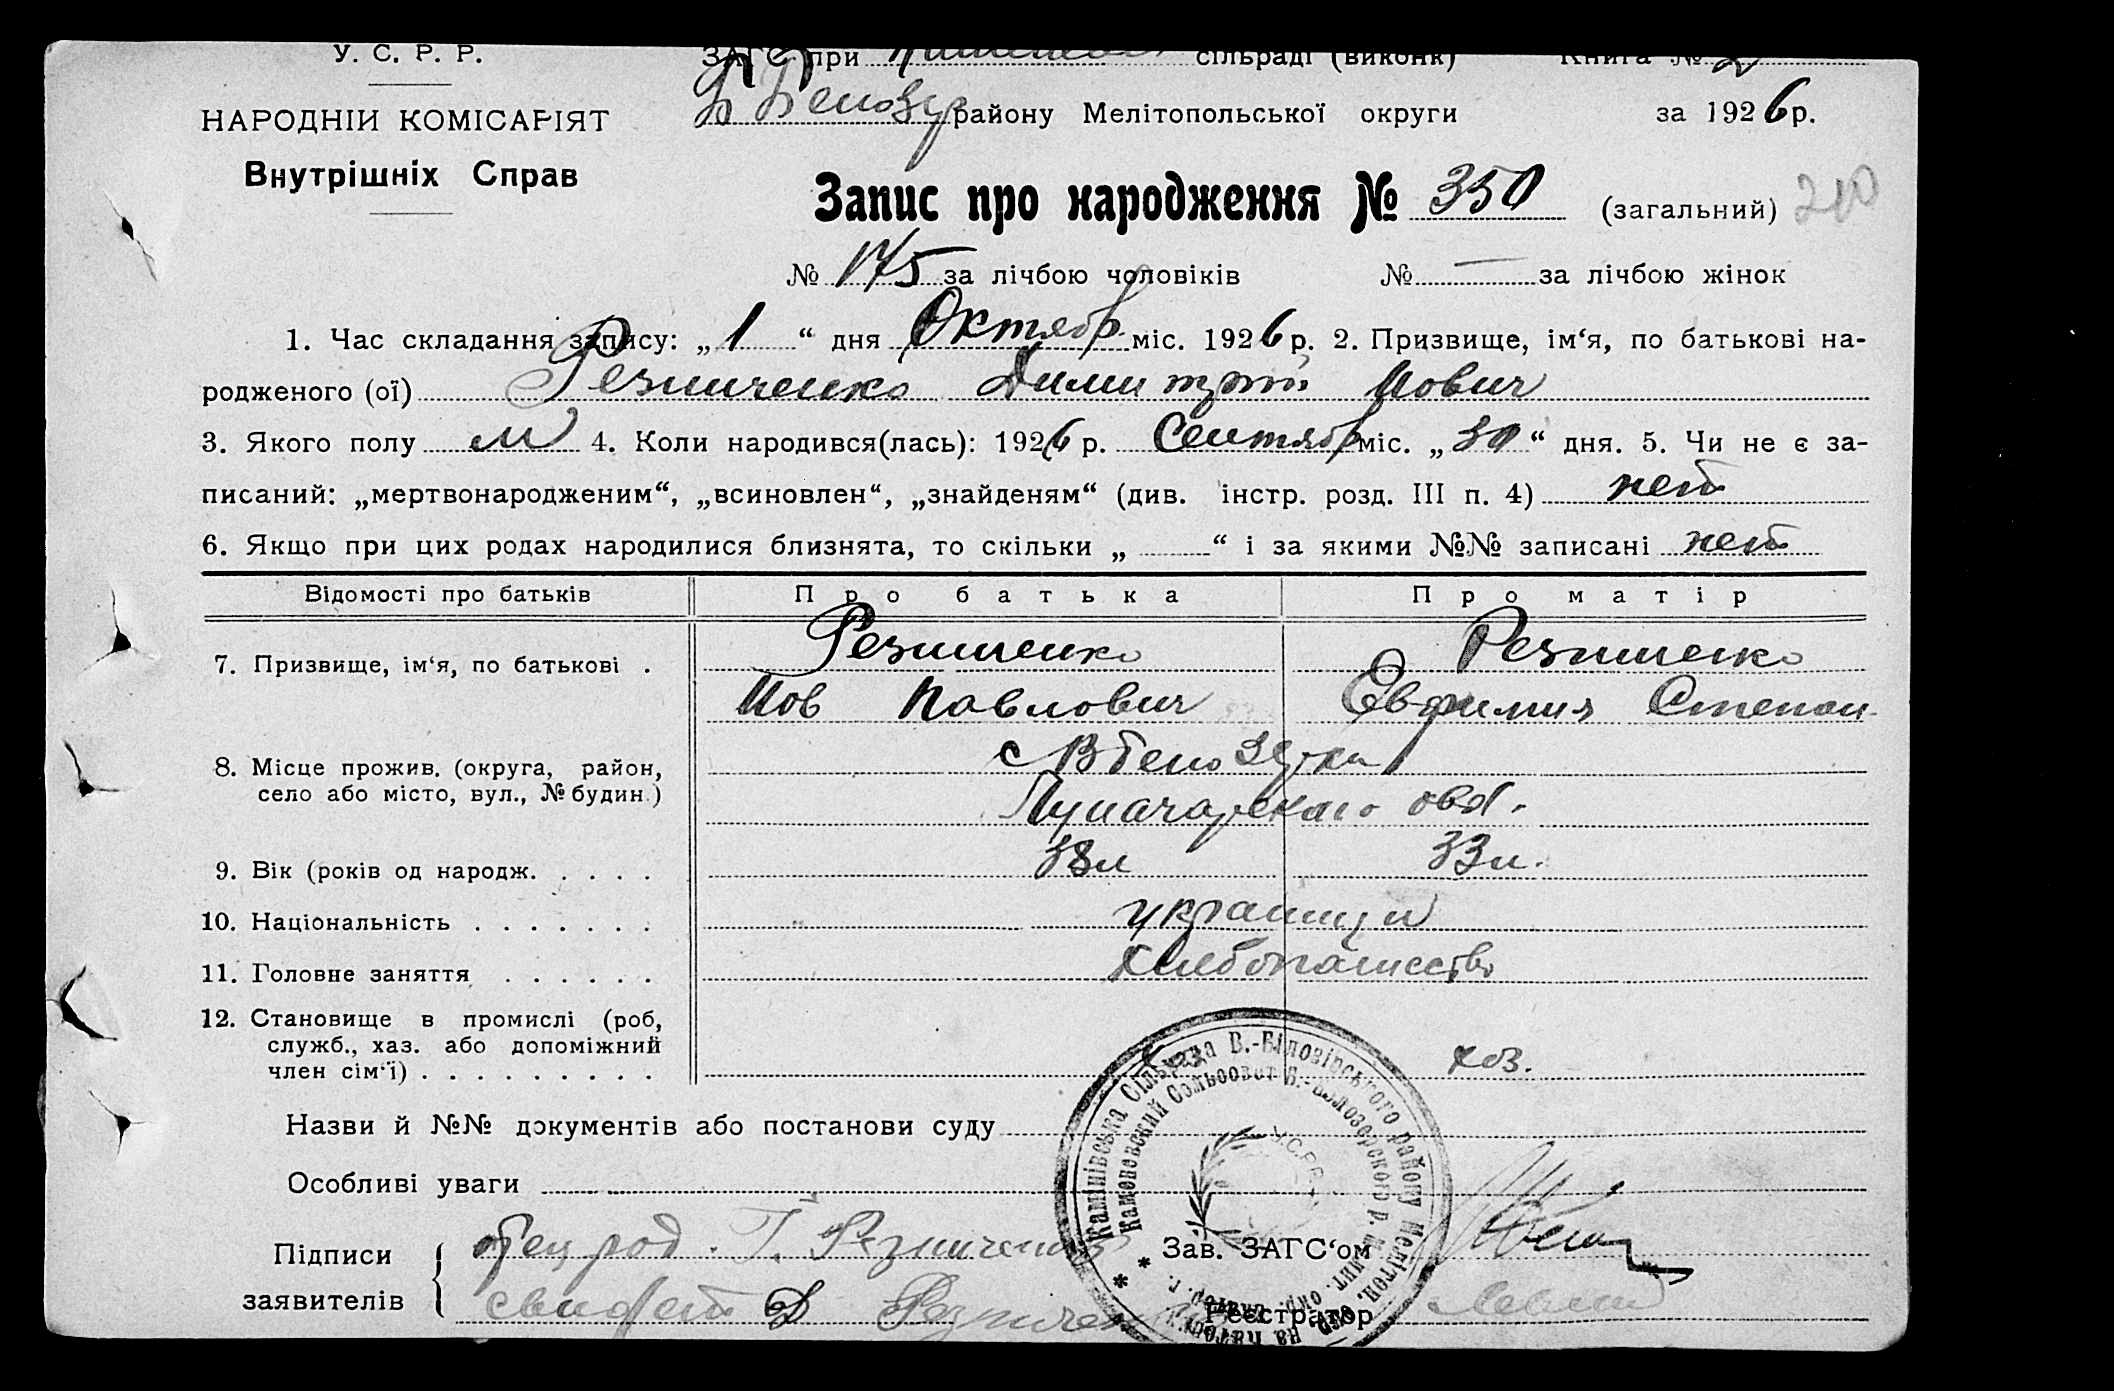 У. С. Р. Р.
ЗАГС при сільраді (виконк) Книга № 2
В Белозер району Мелітопольської округи за 1926 р.
НАРОДНІЙ КОМІСАРІЯТ
Внутрішніх Справ
Запис про народження № 350 (загальний) 210
№ 175 за лічбою чоловіків № — за лічбою жінок
1. Час складання запису: „ 1 “ дня Октябр міс. 1926 р. 2. Призвище, ім‘я, по батькові на-
родженого (ої) Резниченко Димитрий Иович
3. Якого полу м 4. Коли народився(лась): 1926 р. Сентябр міс. „ 30 “ дня. 5. Чи не є за-
писаний: „мертвонародженим“, „всиновлен“, „знайденям“ (див. інстр. розд. III п. 4) нет
6. Якщо при цих родах народилися близнята, то скільки „ “ і за якими №№ записані нет
Відомості про батьків Про батька Про матір
7. Призвище, ім‘я, по батькові . Резниченко Резниченко
Иов Павлович Евфимия Степан
8. Місце прожив. (округа, район, с В Белозерка
село або місто, вул., № будин.)
9. Вік (років од народж. . . . . 38 л 33 л.
10. Національність . . . . . . . украинцы
11. Головне заняття . . . . . . Хлебопашество
12. Становище в промислі (роб,
служб., хаз. або допоміжний
член сім‘ї) . . . . . . . . . хоз.
Назви й №№ документів або постанови суду
Особливі уваги
Підписи отец род. І. Резниченко Зав. ЗАГС‘ом
заявителів свидет Д Резничен Реєстратор
Камінівська Сільрада В.-Біловірського району Мелітоп. окр.
Каменовский Сельсовет В.-Белозерского р. Мелит. окр.
У.С.Р.Р.